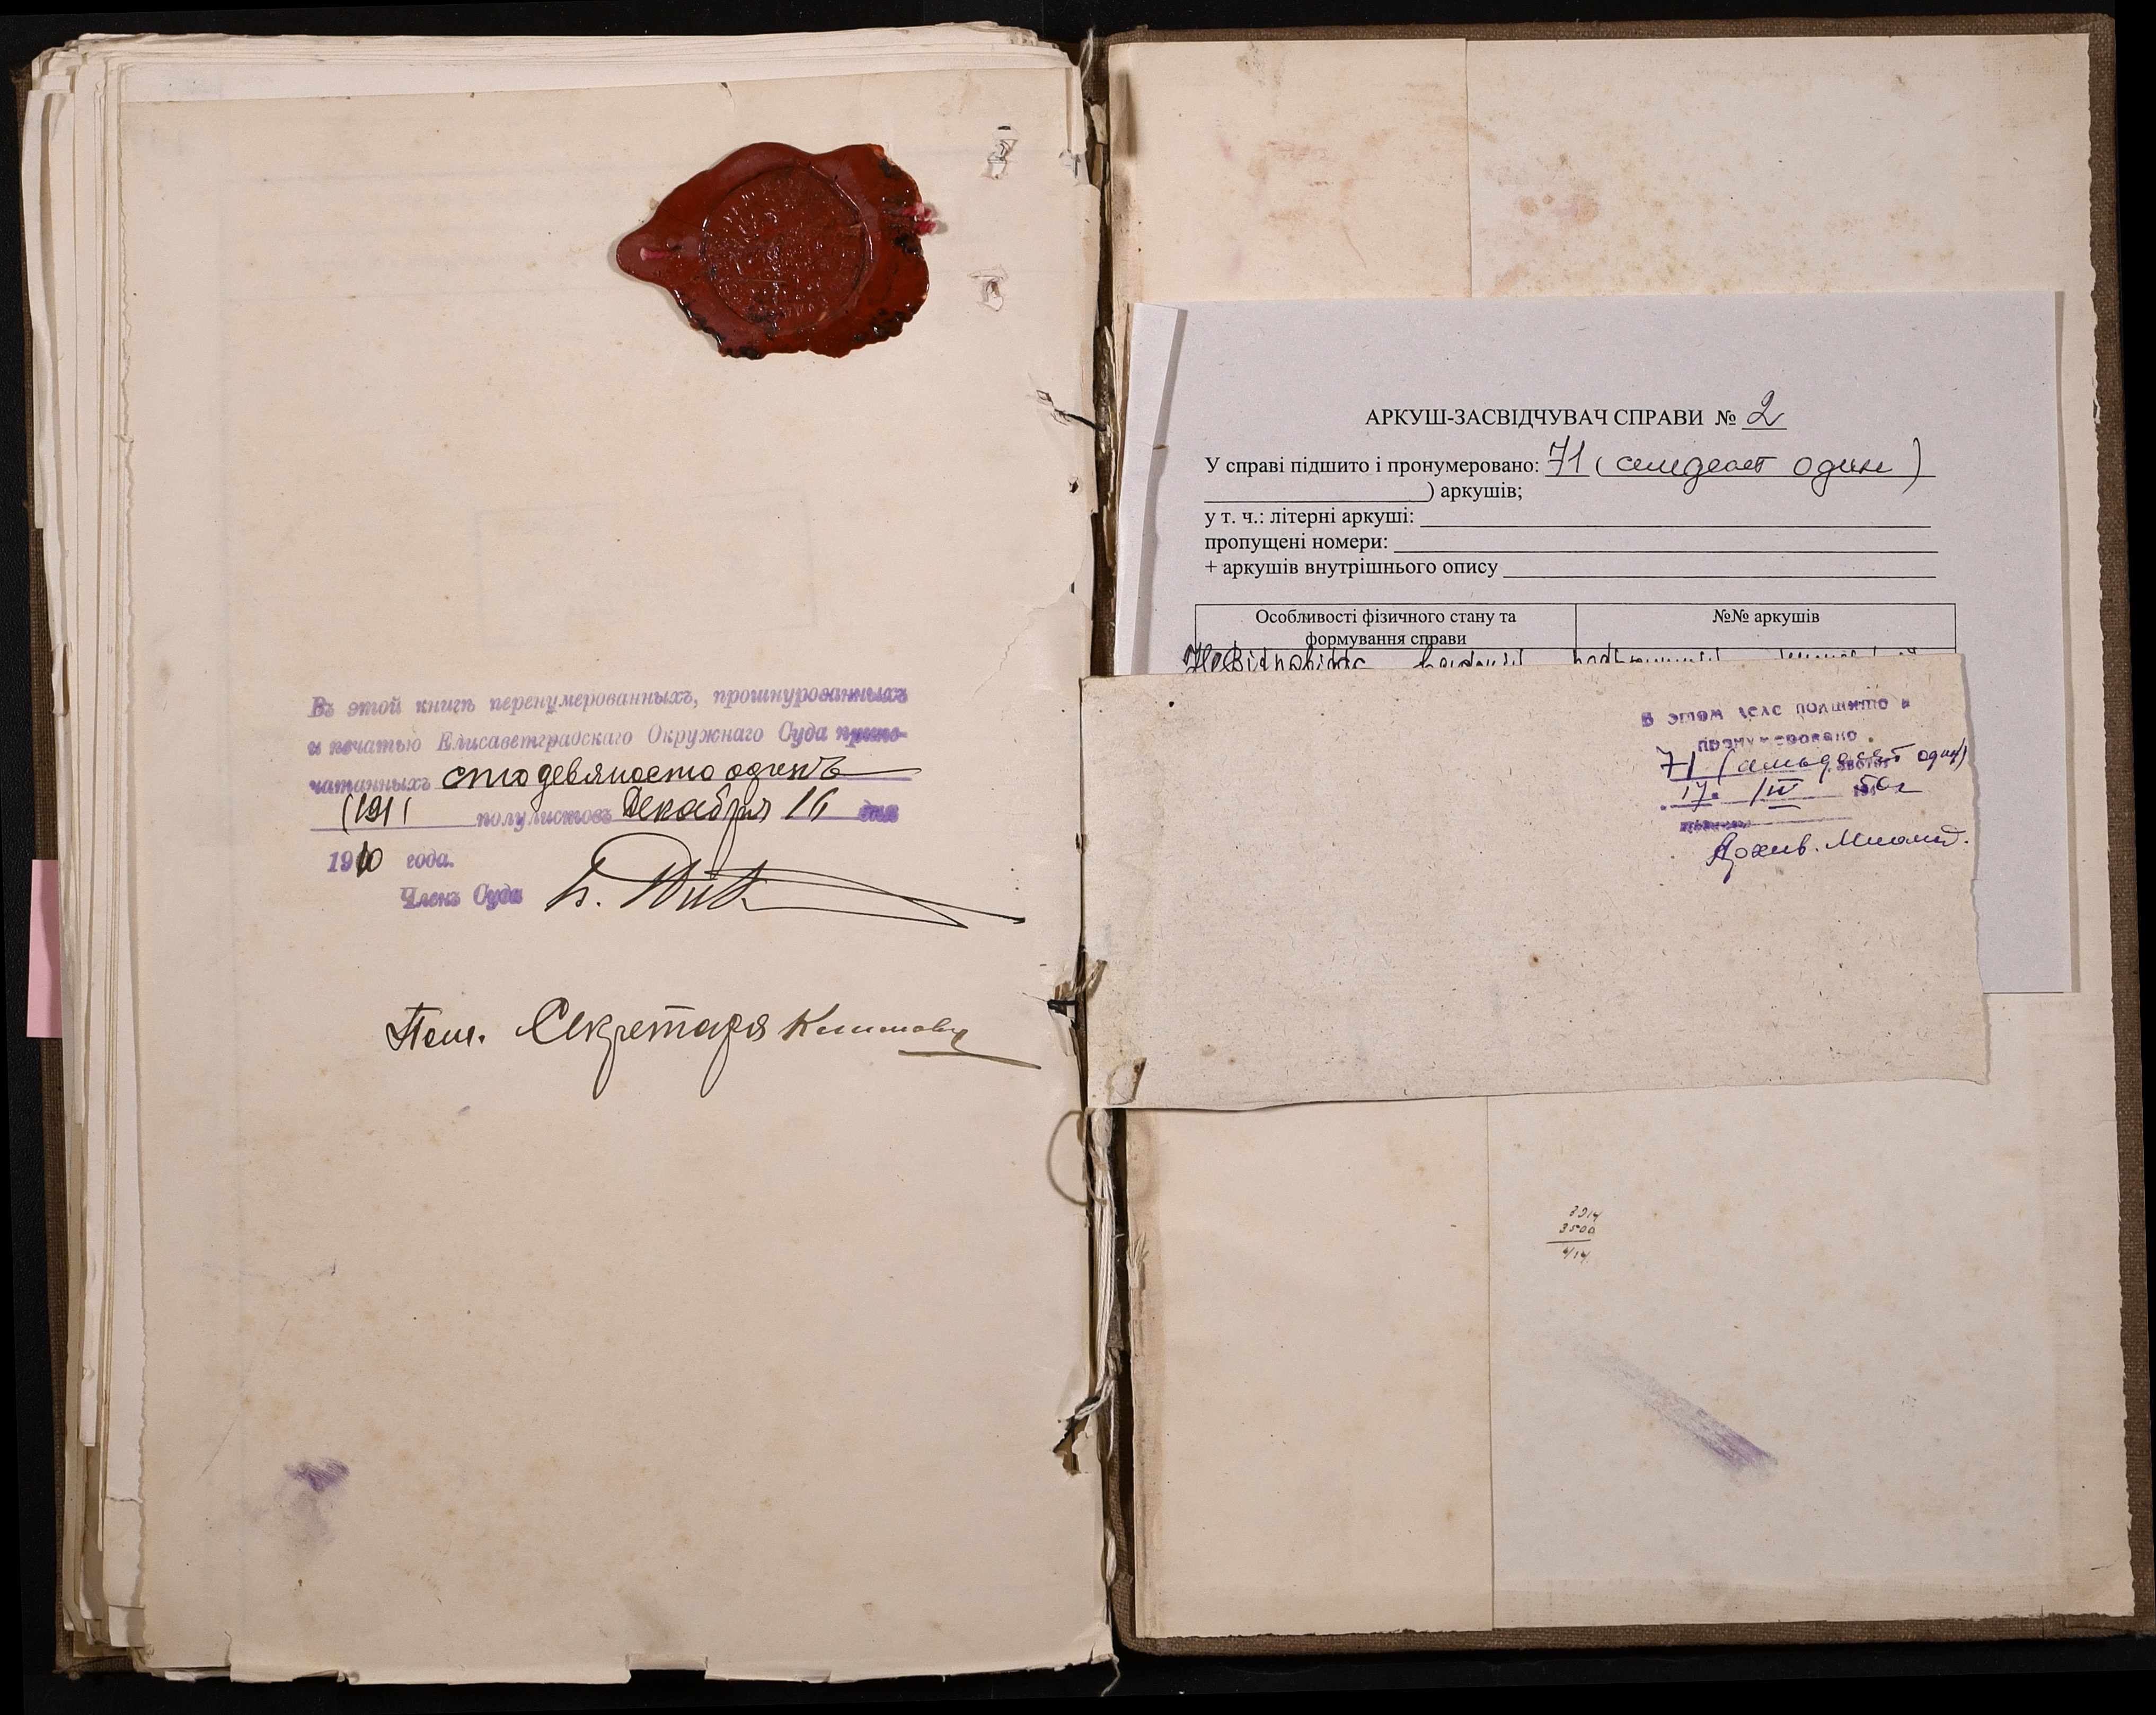 Въ этой книгѣ перенумерованныхъ, прошнурованныхъ
и печатью Елисаветградскаго Окружнаго Суда припе-
чатанныхъ сто девяносто одинъ
(191) полулистовъ Декабря 16 дня
1910 года.
Членъ Суда
Пом. Секретаря
АРКУШ-ЗАСВІДЧУВАЧ СПРАВИ № 2
У справі підшито і пронумеровано: 71 (семдесят один)
) аркушів;
у т. ч.: літерні аркуші:
пропущені номери:
+ аркушів внутрішнього опису
Особливості фізичного стану та
формування справи
№№ аркушів
В этом деле подшито и
пронумеровано
71 (семьдесят один)
17. III 50 г
Архив.
3914
3500
414